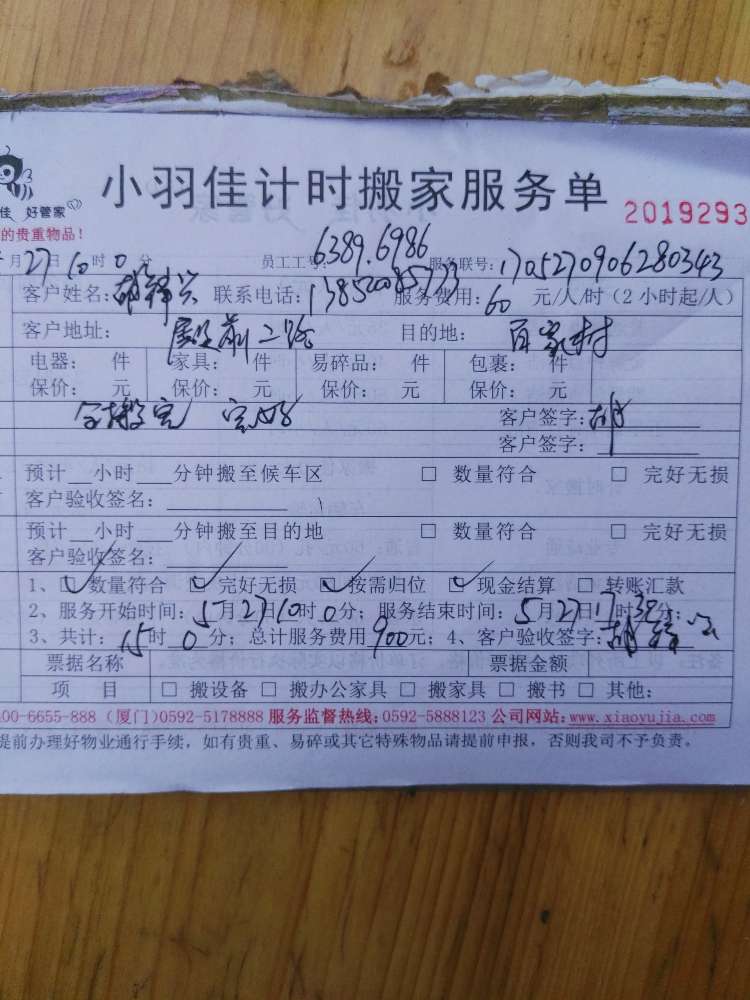 小羽佳计时搬家服务单
佳 好管家
2019293
的贵重物品!
月27日10时0分 员工工号: 6389.6986 服务联号: 1705270906280343
客户姓名: 胡 兴 联系电话: 服务费用: 60 元/人/时(2小时起/人)
客户地址: 殿前二路 目的地: 百家村
电器: 件 家具: 件 易碎品: 件 包裹: 件
保价: 元 保价: 元 保价: 元 保价: 元
全搬完 完好 客户签字: 胡
客户签字:
预计__小时___分钟搬至候车区 □ 数量符合 □ 完好无损
客户验收签名:
预计__小时___分钟搬至目的地 □ 数量符合 □ 完好无损
客户验收签名:
1、☑数量符合 ☑完好无损 ☑按需归位 ☑现金结算 □转账汇款
2、服务开始时间: 5月27日10时0分; 服务结束时间: 5月27日17时38分;
3、共计: 15时0分; 总计服务费用900元; 4、客户验收签字: 胡 兴
票据名称 票据金额
项 目 □ 搬设备 □ 搬办公家具 □ 搬家具 □ 搬书 □ 其他:
00-6655-888 (厦门)0592-5178888 服务监督热线:0592-5888123 公司网站:www.xiaoyujia.com
提前办理好物业通行手续，如有贵重、易碎或其它特殊物品请提前申报，否则我司不予负责。